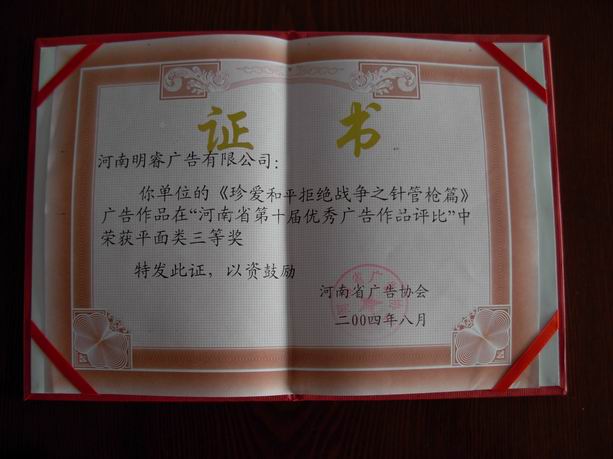 证书
河南明睿广告有限公司:
你单位的《珍爱和平拒绝战争之针管枪篇》
广告作品在“河南省第十届优秀广告作品评比”中
荣获平面类三等奖
特发此证,以资鼓励
河南省广告协会
二00四年八月